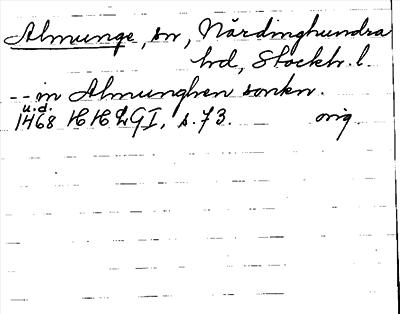 Almunge, sn, Närdinghundra
hd, Stockh. l.
-- in Almunghen sonkn.
u.d.
1468 HHLG I, s. 73. orig